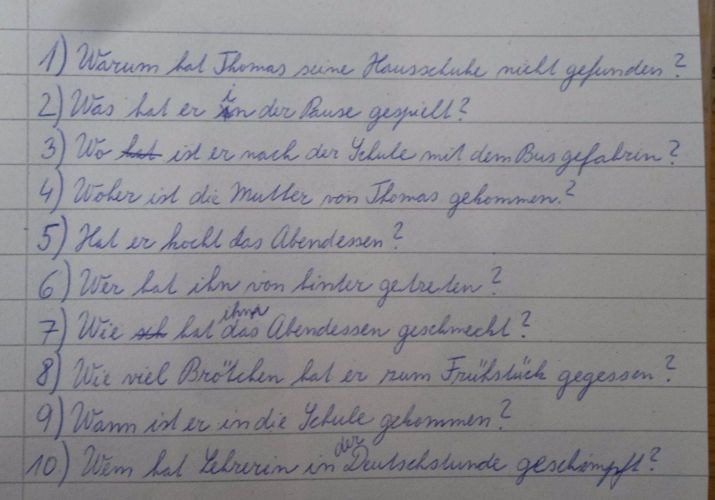 1) Warum hat Thomas seine Hausschuhe nicht gefunden?
2) Was hat er in der Pause gespielt?
3) Wo hat ist er nach der Schule mit dem Bus gefahrin?
4) Woher ist die Mutter von Thomas gekommen?
5) Hat er kocht das Abendessen?
6) Wer hat ihn von hinter getreten?
7) Wie hat ihm das Abendessen geschmeckt?
8) Wie viel Brötchen hat er zum Frühstück gegessen?
9) Wann ist er in die Schule gekommen?
10) Wem hat Lehrerin in der Deutschstunde geschimpft?